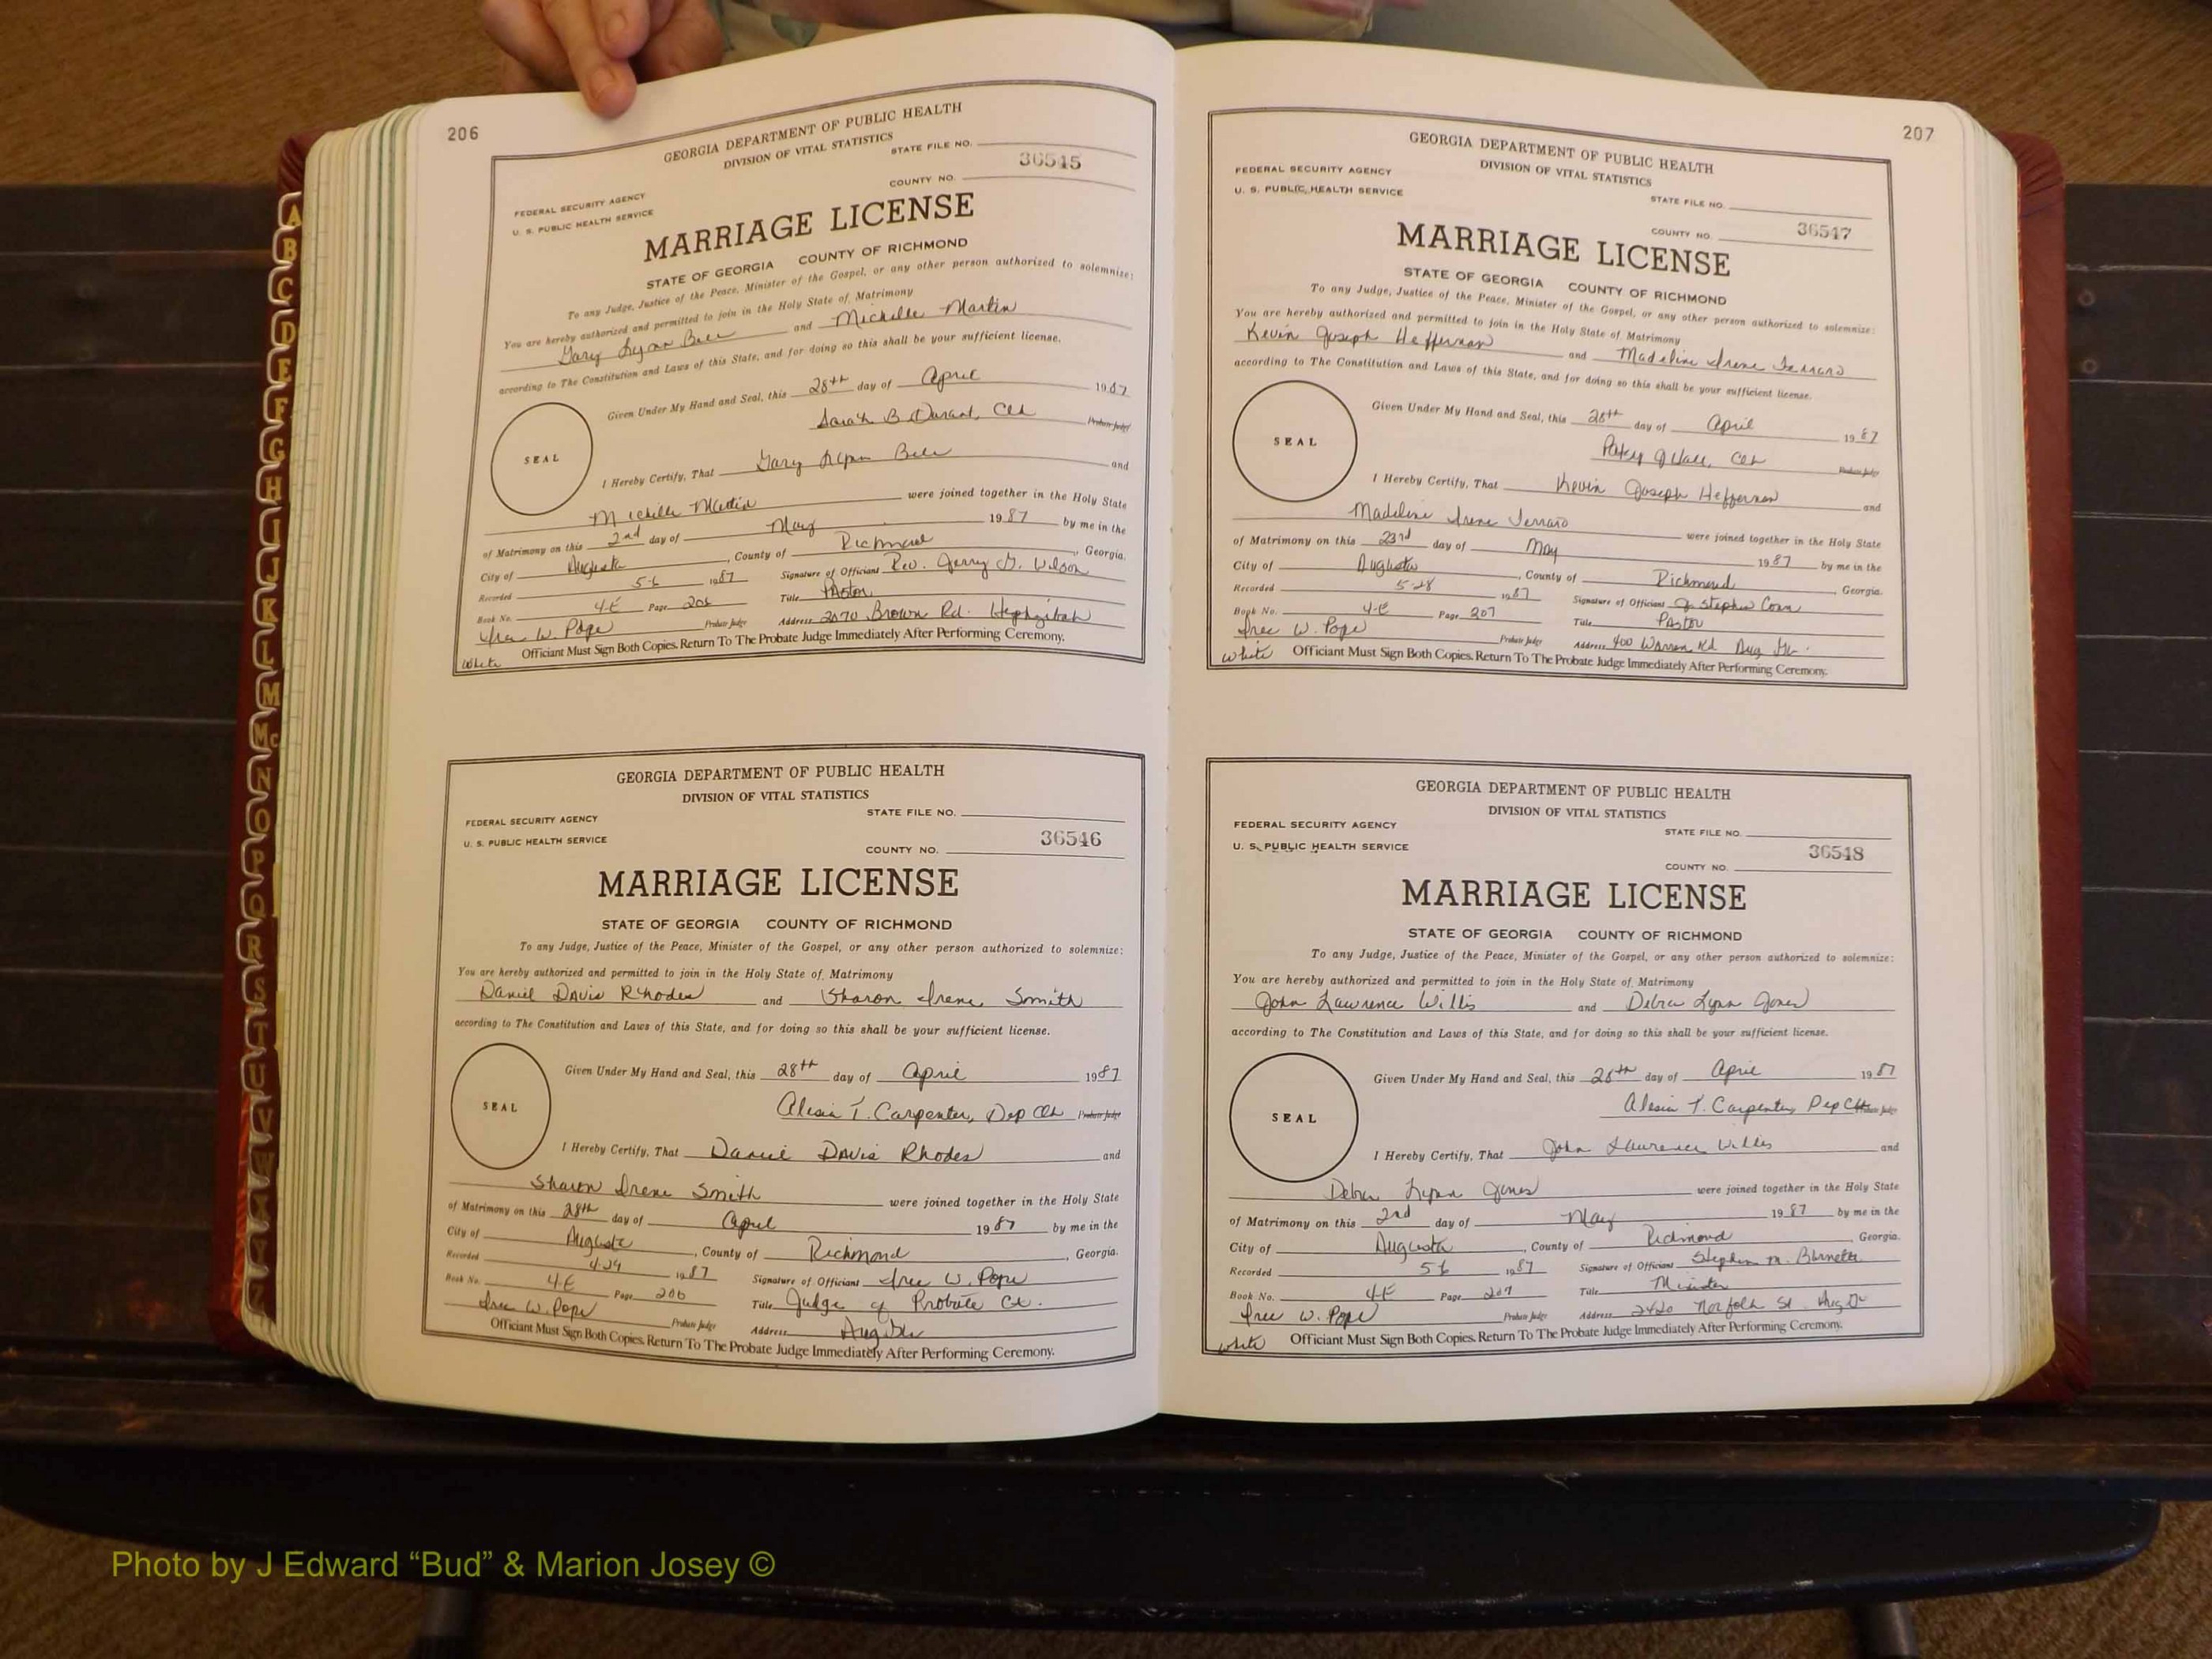 206
GEORGIA DEPARTMENT OF PUBLIC HEALTH
DIVISION OF VITAL STATISTICS
STATE FILE NO.
36545
FEDERAL SECURITY AGENCY
COUNTY NO.
U. S. PUBLIC HEALTH SERVICE
MARRIAGE LICENSE
STATE OF GEORGIA COUNTY OF RICHMOND
To any Judge, Justice of the Peace, Minister of the Gospel, or any other person authorized to solemnize:
You are hereby authorized and permitted to join in the Holy State of Matrimony
Gary Lynn and Michelle Martin
according to The Constitution and Laws of this State, and for doing so this shall be your sufficient license.
Given Under My Hand and Seal, this 28th day of April 1987
Sarah B Durant, Clk Probate Judge
SEAL
I Hereby Certify, That Gary Lynn and
Michelle Martin were joined together in the Holy State
of Matrimony on this 2nd day of May 1987 by me in the
City of Augusta, County of Richmond, Georgia.
Recorded 5-6 1987 Signature of Officiant Rev. Jerry G. Wilson
Book No. 4-E Page 206 Title Pastor
W. Pope Probate Judge Address 2070 Brown Rd. Hephzibah
White Officiant Must Sign Both Copies. Return To The Probate Judge Immediately After Performing Ceremony.
GEORGIA DEPARTMENT OF PUBLIC HEALTH
DIVISION OF VITAL STATISTICS
FEDERAL SECURITY AGENCY
STATE FILE NO.
36546
U. S. PUBLIC HEALTH SERVICE
COUNTY NO.
MARRIAGE LICENSE
STATE OF GEORGIA COUNTY OF RICHMOND
To any Judge, Justice of the Peace, Minister of the Gospel, or any other person authorized to solemnize:
You are hereby authorized and permitted to join in the Holy State of Matrimony
Daniel Davis Rhodes and Sharon Irene Smith
according to The Constitution and Laws of this State, and for doing so this shall be your sufficient license.
Given Under My Hand and Seal, this 28th day of April 1987
Alesia T. Carpenter, Dep Clk Probate Judge
SEAL
I Hereby Certify, That Daniel Davis Rhodes and
Sharon Irene Smith were joined together in the Holy State
of Matrimony on this 28th day of April 1987 by me in the
City of Augusta, County of Richmond, Georgia.
Recorded 4-29 1987 Signature of Officiant W. Pope
Book No. 4-E Page 206 Title Judge of Probate Ct.
W. Pope Probate Judge Address
Officiant Must Sign Both Copies. Return To The Probate Judge Immediately After Performing Ceremony.
207
GEORGIA DEPARTMENT OF PUBLIC HEALTH
DIVISION OF VITAL STATISTICS
FEDERAL SECURITY AGENCY
U. S. PUBLIC HEALTH SERVICE
STATE FILE NO.
36547
COUNTY NO.
MARRIAGE LICENSE
STATE OF GEORGIA COUNTY OF RICHMOND
To any Judge, Justice of the Peace, Minister of the Gospel, or any other person authorized to solemnize:
You are hereby authorized and permitted to join in the Holy State of Matrimony
Kevin Joseph Heffernan and Madeline Irene Ferraro
according to The Constitution and Laws of this State, and for doing so this shall be your sufficient license.
Given Under My Hand and Seal, this 28th day of April 1987
Clk Probate Judge
SEAL
I Hereby Certify, That Kevin Joseph Heffernan and
Madeline Irene Ferraro were joined together in the Holy State
of Matrimony on this 23rd day of May 1987 by me in the
City of Augusta, County of Richmond, Georgia.
Recorded 5-28 1987 Signature of Officiant Stephen
Book No. 4-E Page 207 Title Pastor
W. Pope Probate Judge Address 400 Warren Rd Aug Ga.
White Officiant Must Sign Both Copies. Return To The Probate Judge Immediately After Performing Ceremony.
GEORGIA DEPARTMENT OF PUBLIC HEALTH
DIVISION OF VITAL STATISTICS
FEDERAL SECURITY AGENCY
STATE FILE NO.
U. S. PUBLIC HEALTH SERVICE
36548
COUNTY NO.
MARRIAGE LICENSE
STATE OF GEORGIA COUNTY OF RICHMOND
To any Judge, Justice of the Peace, Minister of the Gospel, or any other person authorized to solemnize:
You are hereby authorized and permitted to join in the Holy State of Matrimony
John Lawrence Willis and Debra Lynn Jones
according to The Constitution and Laws of this State, and for doing so this shall be your sufficient license.
Given Under My Hand and Seal, this 28th day of April 1987
Alesia T. Carpenter, Dep Clk Probate Judge
SEAL
I Hereby Certify, That John Lawrence Willis and
Debra Lynn Jones were joined together in the Holy State
of Matrimony on this 2nd day of May 1987 by me in the
City of Augusta, County of Richmond, Georgia.
Recorded 5-6 1987 Signature of Officiant Stephen M.
Book No. 4-E Page 207 Title Minister
W. Pope Probate Judge Address 2420 Norfolk St Aug
White Officiant Must Sign Both Copies. Return To The Probate Judge Immediately After Performing Ceremony.
A
B
C
D
E
F
G
H
I
J
K
L
M
Mc
N
O
P
Q
R
S
T
U
V
W
X
Y
Z
Photo by J Edward “Bud” & Marion Josey ©